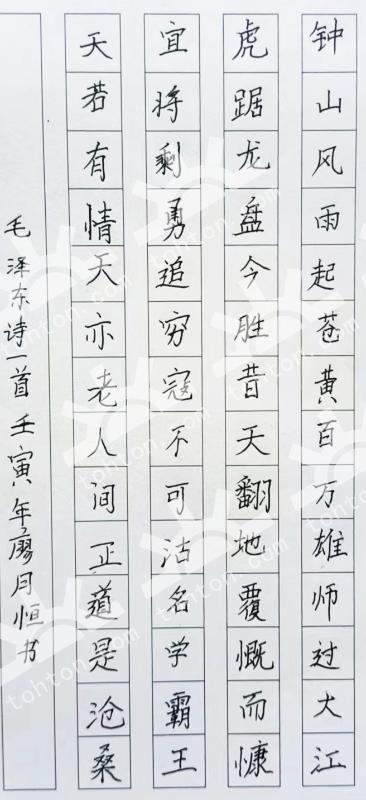 钟山风雨起苍黄百万雄师过大江
虎踞龙盘今胜昔天翻地覆慨而慷
宜将剩勇追穷寇不可沽名学霸王
天若有情天亦老人间正道是沧桑
毛泽东诗一首 壬寅年廖月恒书
tohton.com